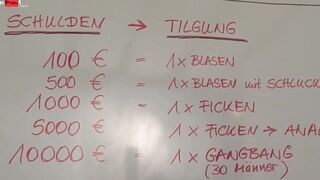 SCHULDEN → TILGUNG
100 € = 1x BLASEN
500 € = 1x BLASEN mit SCHLUCK
1000 € = 1x FICKEN
5000 € = 1x FICKEN → ANAL
10000 € = 1x GANGBANG
(30 Männer)